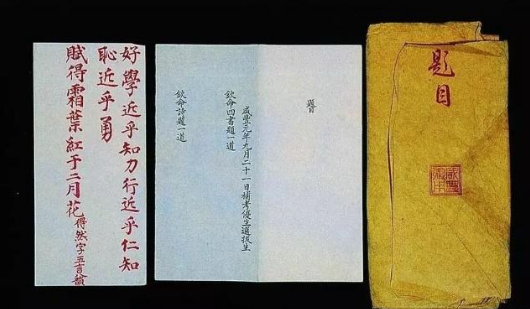 題目
題目
咸豐元年九月二十一日補考優生選拔生
欽命四書題一道
欽命詩題一道
好學近乎知力行近乎仁知
恥近乎勇
賦得霜葉紅于二月花得然字五言八韻